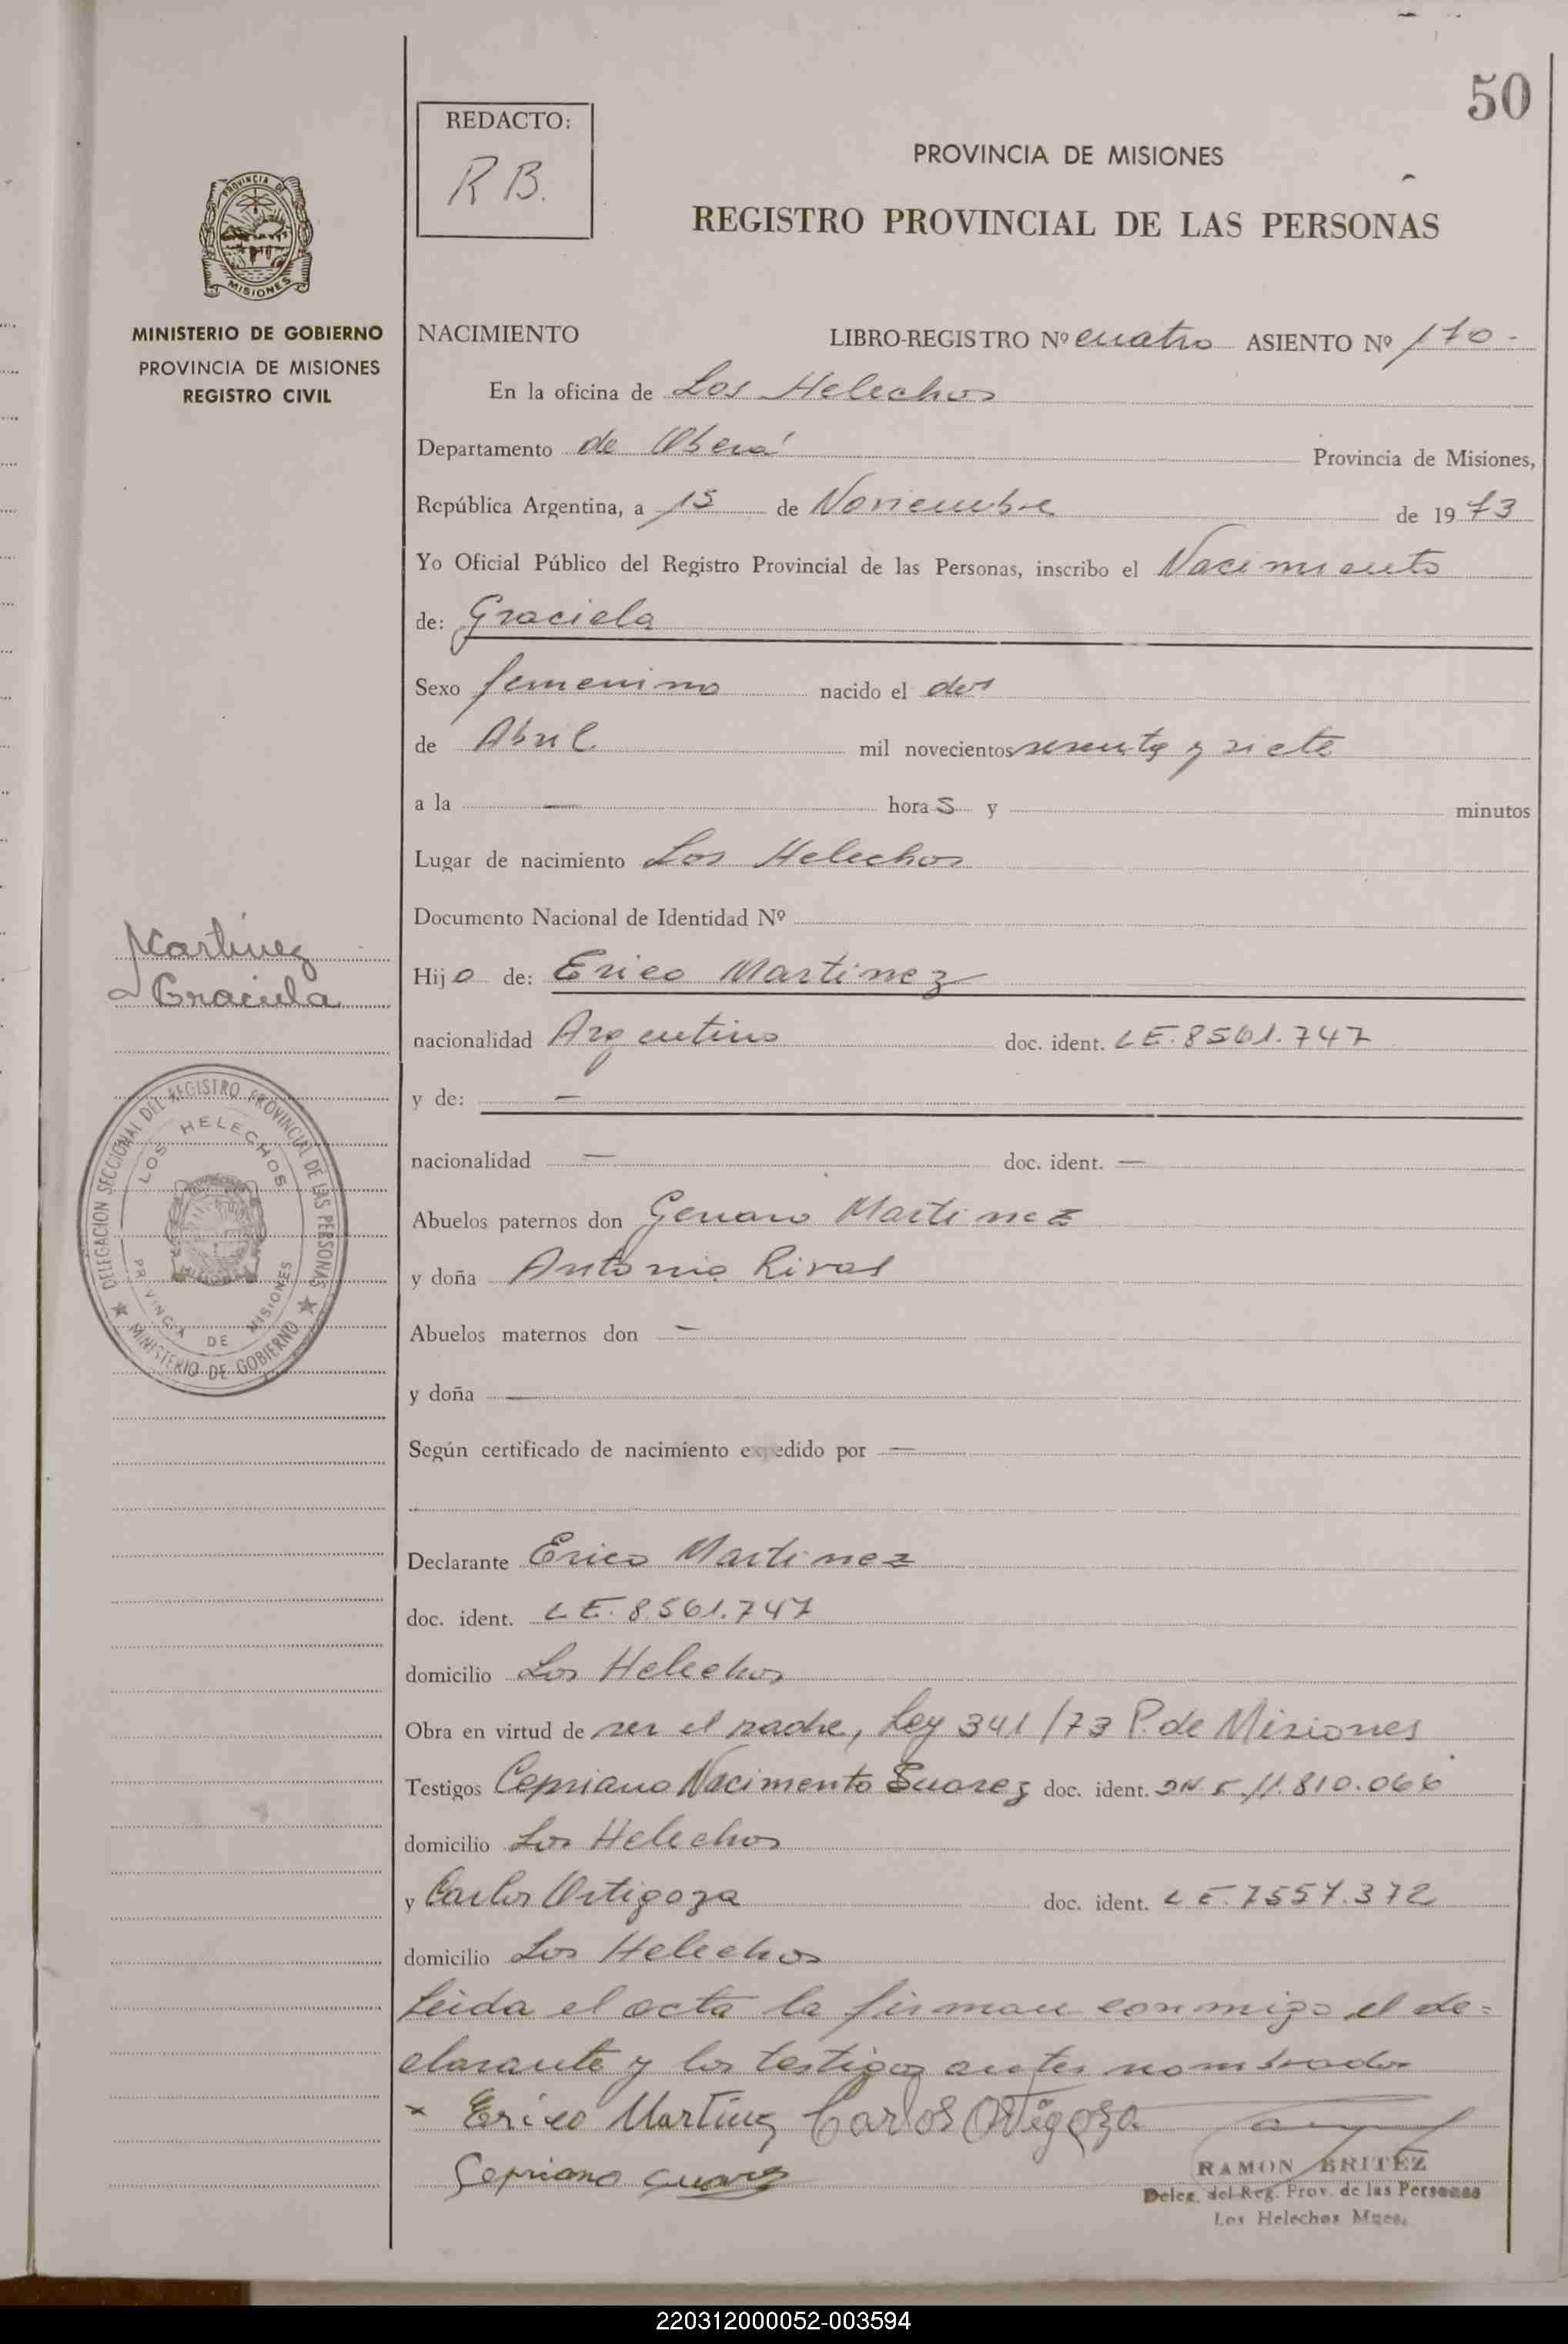 50
REDACTO:
R B.
PROVINCIA DE MISIONES
REGISTRO PROVINCIAL DE LAS PERSONAS
PROVINCIA DE
MISIONES
MINISTERIO DE GOBIERNO
PROVINCIA DE MISIONES
REGISTRO CIVIL
NACIMIENTO LIBRO-REGISTRO Nº cuatro ASIENTO Nº 170-
En la oficina de Los Helechos
Departamento de Oberá Provincia de Misiones,
República Argentina, a 15 de Noviembre de 1973
Yo Oficial Público del Registro Provincial de las Personas, inscribo el Nacimiento
de: Graciela
Sexo femenino nacido el dos
de Abril mil novecientos sesenta y siete
a la — horas y minutos
Lugar de nacimiento Los Helechos
Documento Nacional de Identidad Nº
Martinez
Graciela
Hija de: Erico Martinez
nacionalidad Argentino doc. ident. L E. 8561.747
y de: —
nacionalidad — doc. ident. —
Abuelos paternos don Genaro Martinez
y doña Antonia Rivas
Abuelos maternos don —
y doña —
Según certificado de nacimiento expedido por —
DELEGACION SECCIONAL DEL REGISTRO PROVINCIAL DE LAS PERSONAS
LOS HELECHOS
PROVINCIA DE MISIONES
MINISTERIO DE GOBIERNO
Declarante Erico Martinez
doc. ident. L E. 8.561.747
domicilio Los Helechos
Obra en virtud de ser el padre, Ley 341/73 P. de Misiones
Testigos Cepriano Nacimento Suarez doc. ident. 11.810.066
domicilio Los Helechos
y Carlos Ortigoza doc. ident. L E. 7557.372
domicilio Los Helechos
Leida el acta la firman conmigo el de=
clarante y los testigos antes nombrados
x Erico Martinez Carlos Ortigoza
Cepriano Suarez
RAMON BRITEZ
Deleg. del Reg. Prov. de las Personas
Los Helechos Mnes.
220312000052-003594